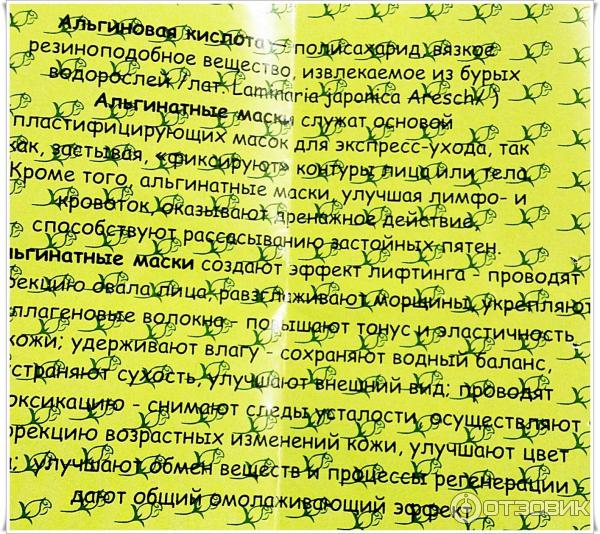 Альгиновая кислота - полисахарид, вязкое
резиноподобное вещество, извлекаемое из бурых
водорослей /лат. Laminaria japonica Areschk )
Альгинатные маски служат основой
пластифицирующих масок для экспресс-ухода, так
как, застывая, «фиксируют» контуры лица или тела.
Кроме того, альгинатные маски, улучшая лимфо- и
кровоток, оказывают дренажное действие,
способствуют рассасыванию застойных пятен.
льгинатные маски создают эффект лифтинга - проводят
рекцию овала лица, разглаживают морщины, укрепляют
ллагеновые волокна - повышают тонус и эластичность
кожи; удерживают влагу - сохраняют водный баланс,
устраняют сухость, улучшают внешний вид; проводят
оксикацию - снимают следы усталости, осуществляют
ррекцию возрастных изменений кожи, улучшают цвет
; улучшают обмен веществ и процессы регенерации -
дают общий омолаживающий эффект
ОТЗОВИК